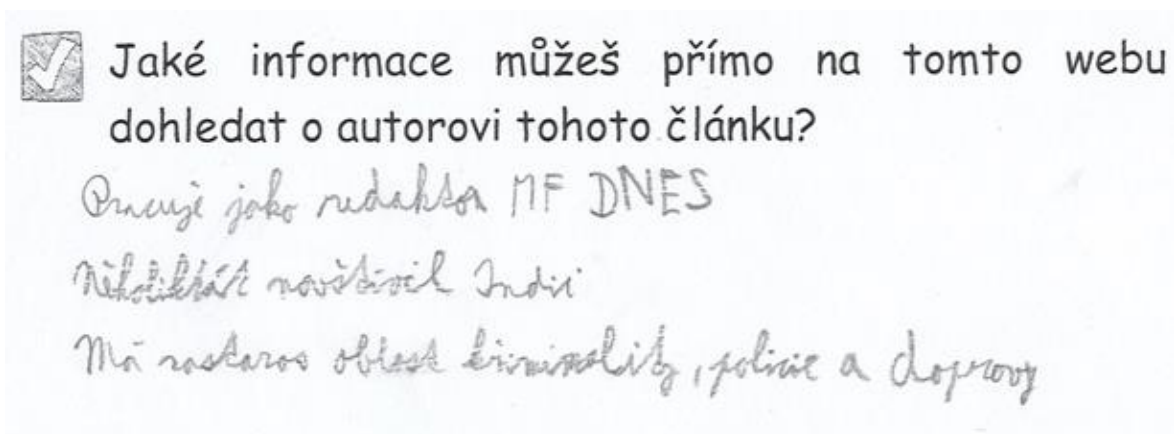 Jaké informace můžeš přímo na tomto webu
dohledat o autorovi tohoto článku?
Pracuje jako redaktor MF DNES
Několikrát navštívil Indii
Má nastaros oblast kriminality, policie a dopravy